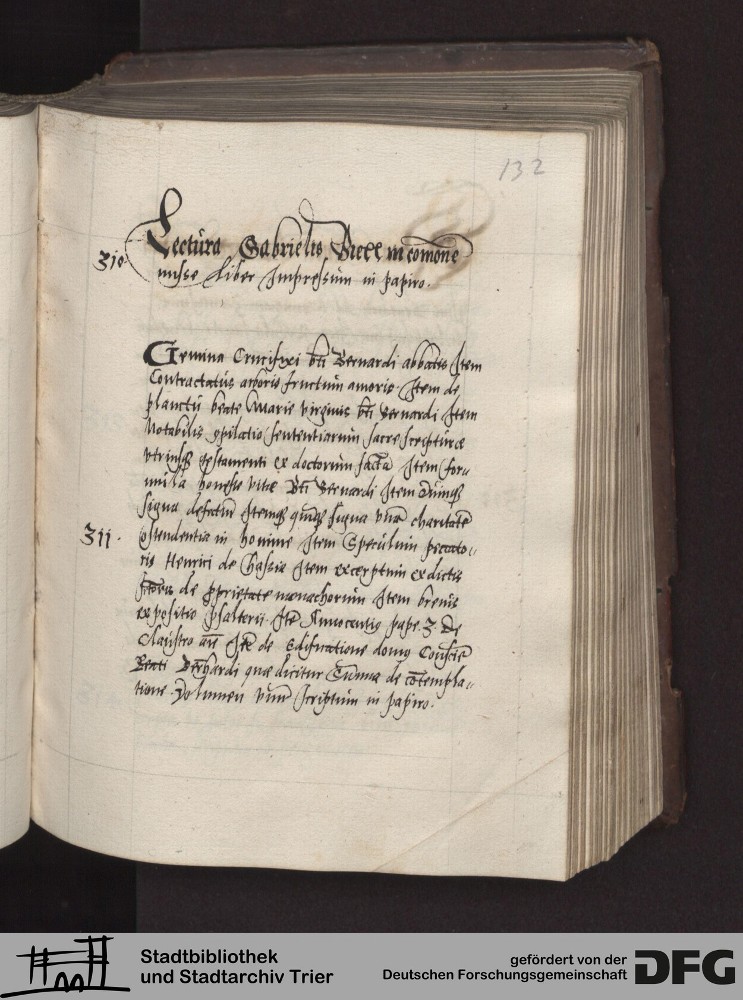 132
310 Lectura Gabrielis Biell in canone
misse Liber Impressum in papiro.
Gemina Crucifixi bti Bernardi abbatis Item
Contractatus arboris fructuum amoris. Item de
planctu beate Marie virginis bti Bernardi Item
Notabilis opilatio sententiarum sacre scripturæ
utriusq testamenti ex doctorum Item for-
mula honeste vitæ Bti Bernardi Item
signa Itemq quinq signa charitatē
311. ostendentia in homine Item Speculum peccato-
ris Henrici de Hassia Item excerptum ex dictis
de pprietate monachorum Item brevis
expositio psalterii Itē Innocentio pape 3 De
Claustro aīe Itē de edificatione domo Consciē
Beati Bernhardi quæ dicitur Summa de cōtempla-
tione. Volumen unum scriptum in papiro.
Stadtbibliothek
und Stadtarchiv Trier
gefördert von der
Deutschen Forschungsgemeinschaft
DFG